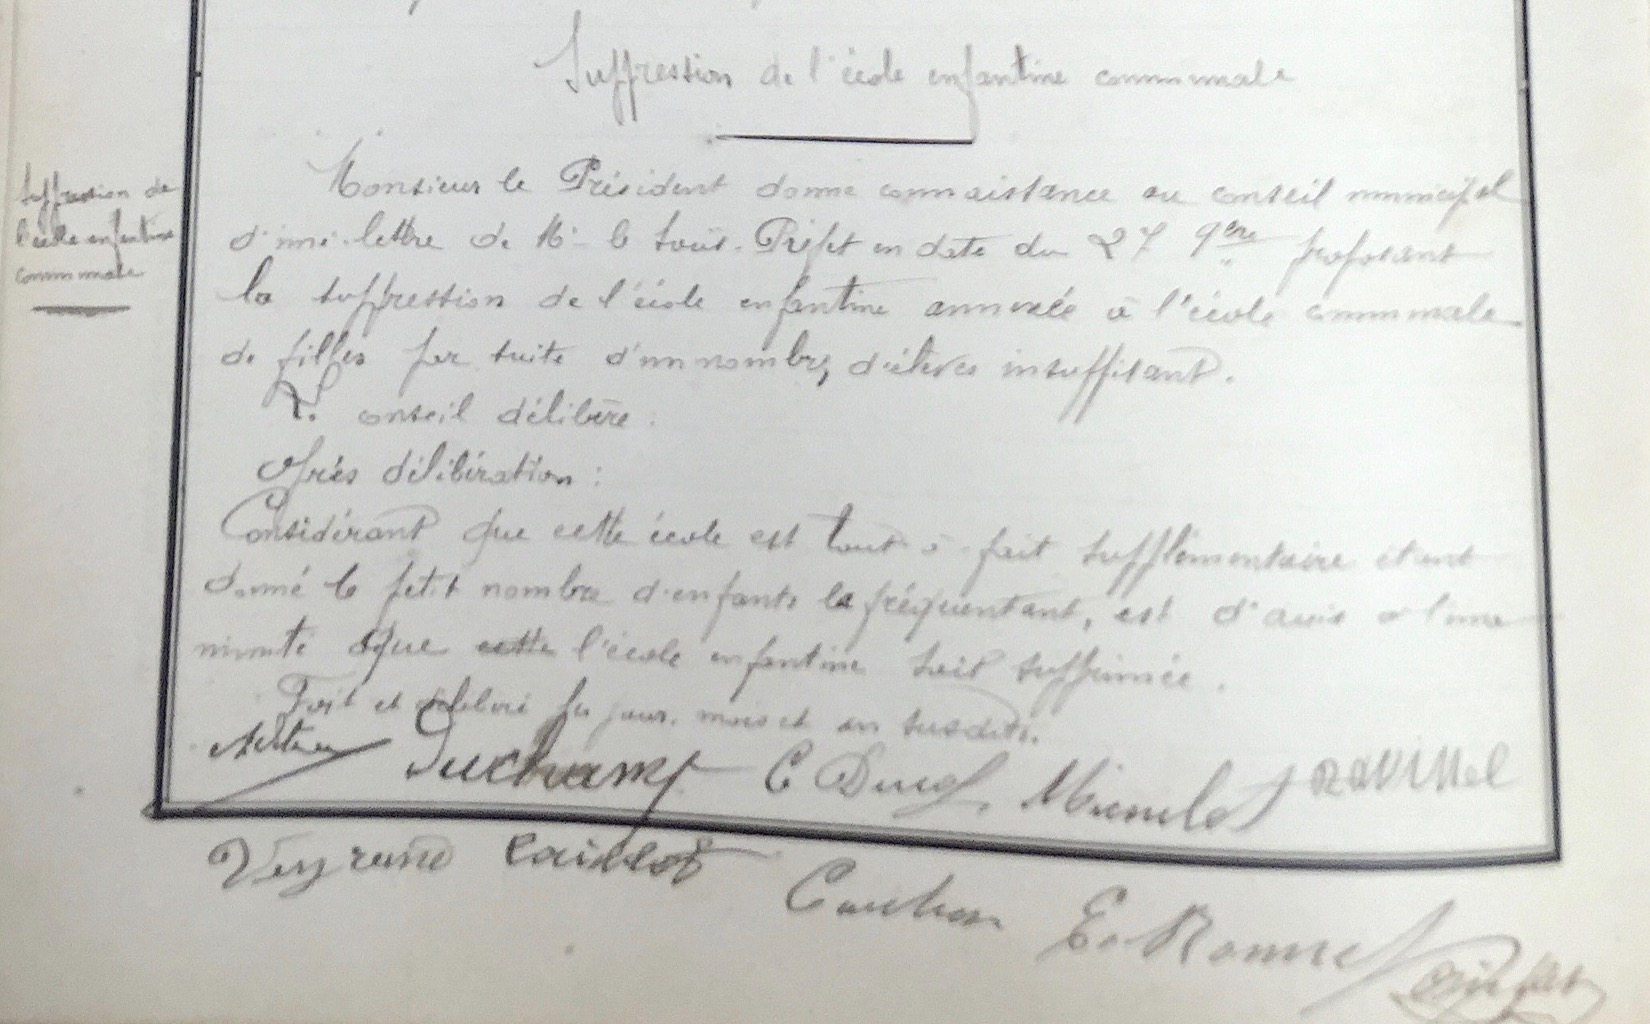 Suppression de l'école enfantine communale
Suppression de
l'école enfantine
communale
Monsieur le Président donne connaissance au conseil municipal
d'une lettre de Mr le Sous-Préfet en date du 27 9bre proposant
la suppression de l'école enfantine annexée à l'école communale
de filles par suite d'un nombre, d'élèves insuffisant.
Le conseil délibère.
Après délibération :
Considérant que cette école est tout à fait supplémentaire étant
donné le petit nombre d'enfants la fréquentant, est d'avis à l'una
nimité que cette l'école enfantine soit supprimée.
Fait et délibéré les jour, mois et an susdits.
Duchamp C Duc Michelot RAVINel
Veyrand Caillot
Cauchon E. Bonnel